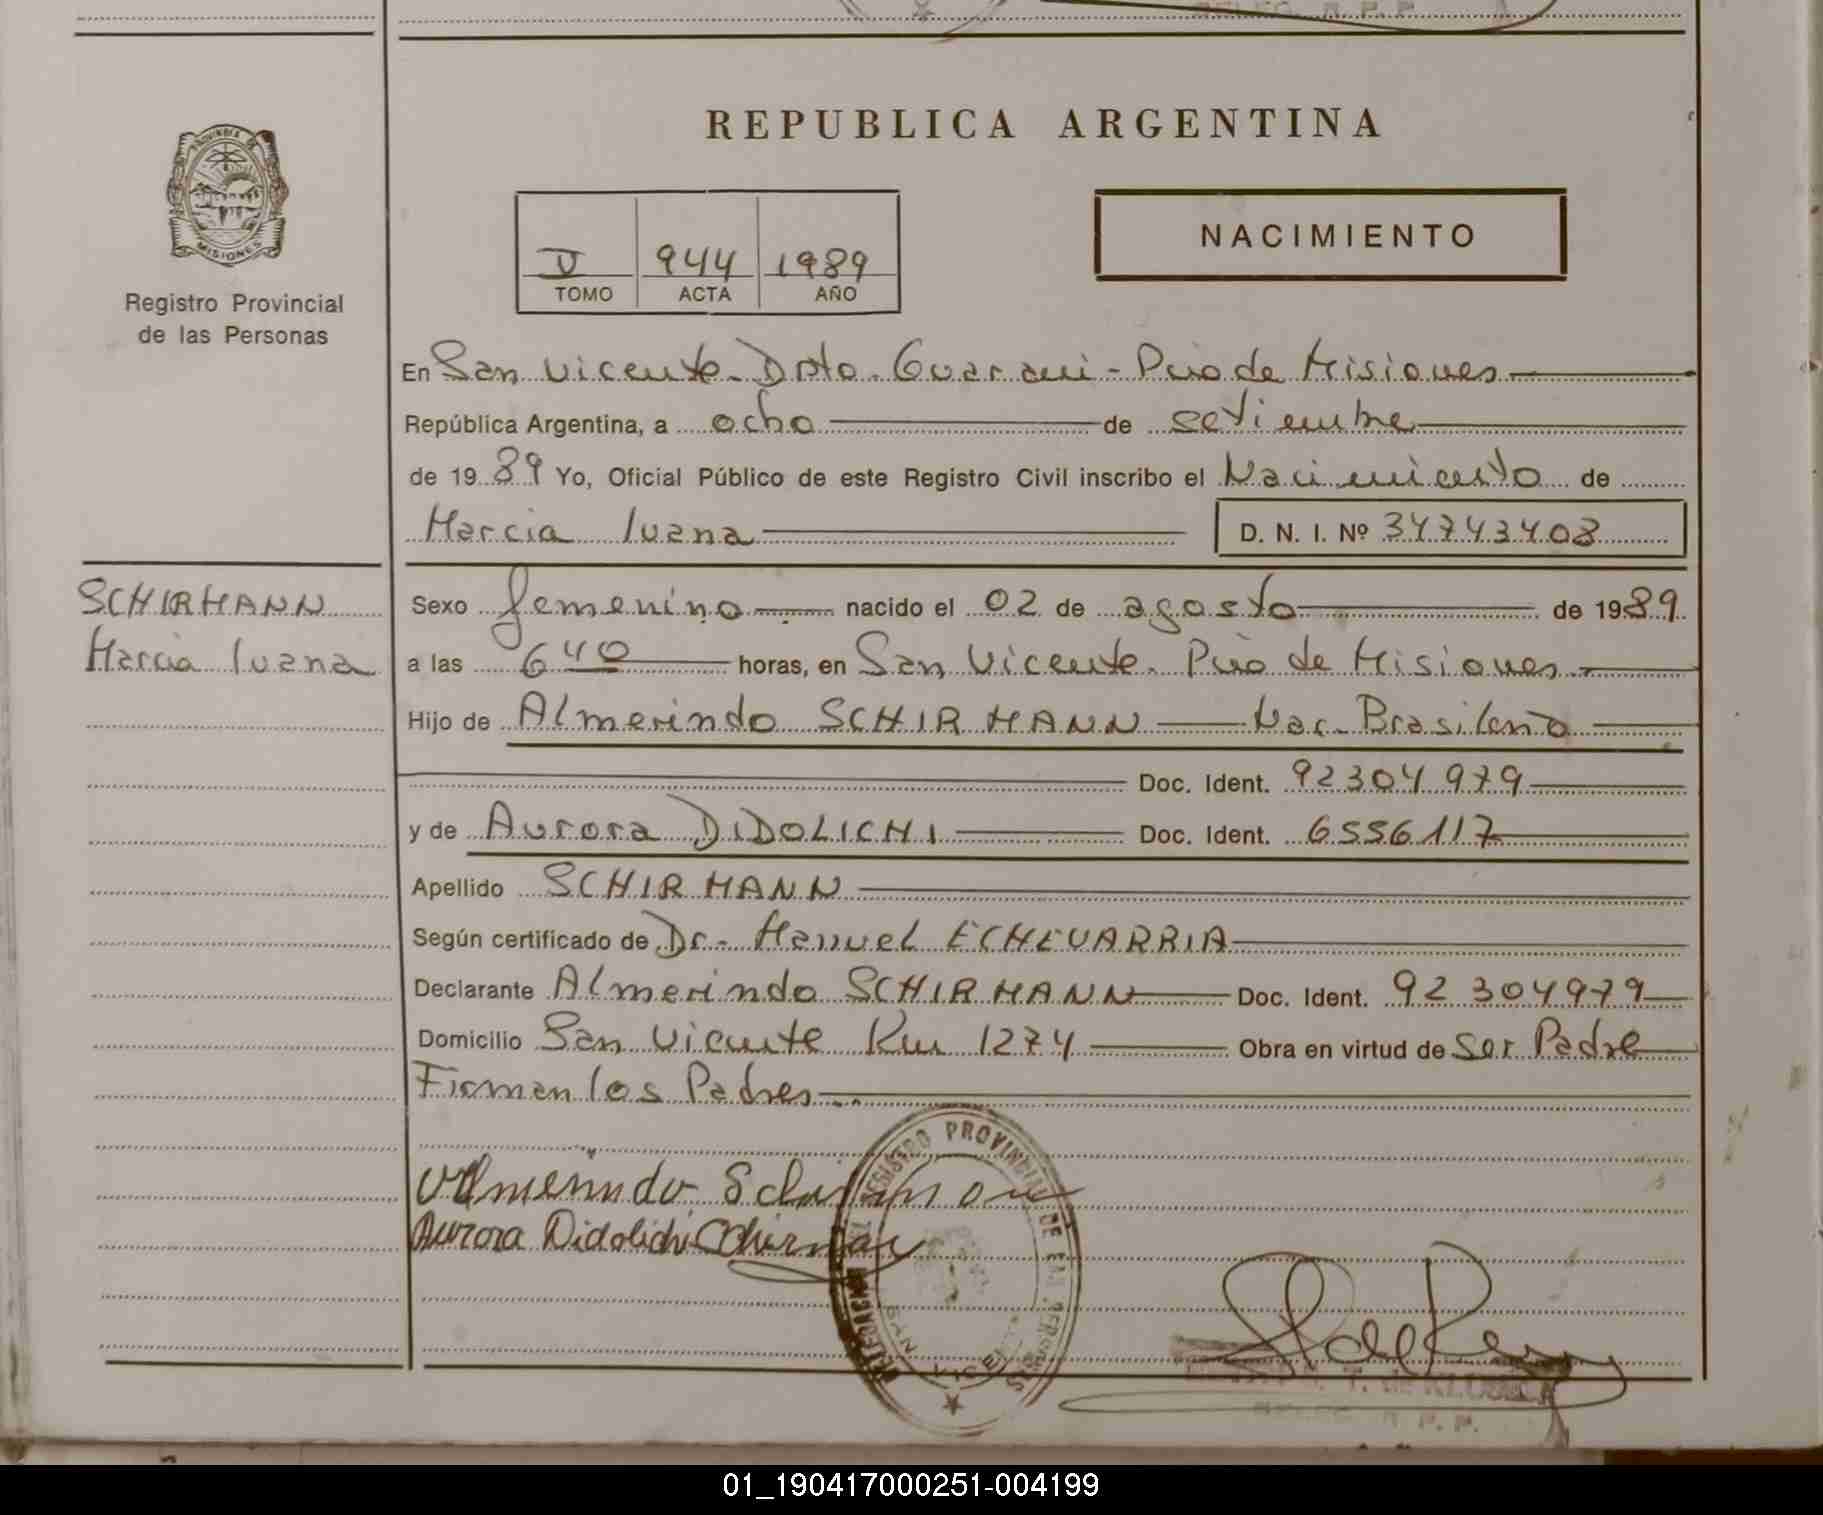 REPUBLICA ARGENTINA
PROVINCIA DE
MISIONES
Registro Provincial
de las Personas
V 944 1989
TOMO ACTA AÑO
NACIMIENTO
En San Vicente - Dpto. Guarani - Pcia de Misiones
República Argentina, a ocho de setiembre
de 1989 Yo, Oficial Público de este Registro Civil inscribo el Nacimiento de
Marcia Ivana D. N. I. Nº 34743408
SCHIRMANN
Marcia Ivana
Sexo femenino nacido el 02 de agosto de 1989
a las 6 40 horas, en San Vicente - Pcia de Misiones
Hijo de Almerindo SCHIRMANN Nac. Brasileña
Doc. Ident. 92304979
y de Aurora DIDOLICHI Doc. Ident. 6556117
Apellido SCHIRMANN
Según certificado de Dr. Manuel ECHEVARRIA
Declarante Almerindo SCHIRMANN Doc. Ident. 92 304979
Domicilio San Vicente Km 1274 Obra en virtud de Ser Padre
Firman los Padres
Almerindo Schirmann
Aurora Didolichi Schirman
REGISTRO PROVINCIAL DE LAS PERSONAS
DELEGACION
SAN VICENTE
R. P. P.
01_190417000251-004199